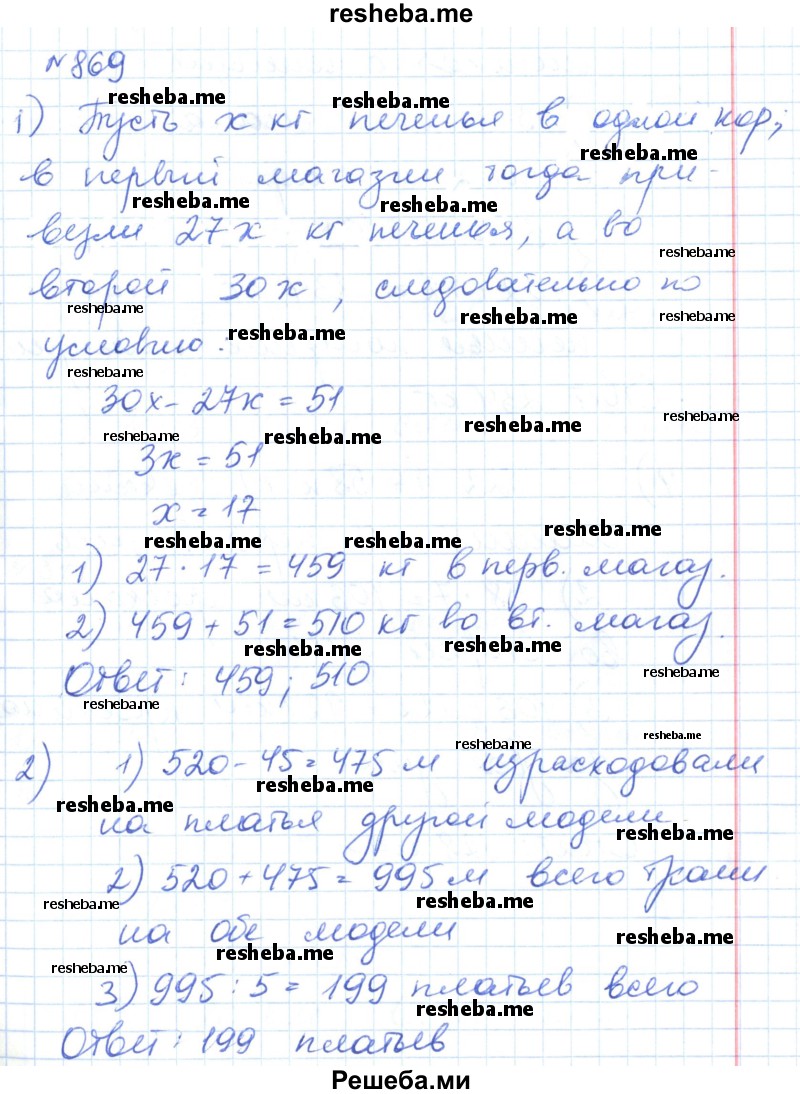 resheba.me
№869
resheba.me resheba.me
1) Пусть x кг печенья в одной кор;
resheba.me
в первый магазин тогда при-
resheba.me resheba.me
везли 27x кг печенья, а во
resheba.me
второй 30x, следовательно по
resheba.me resheba.me resheba.me
условию:
resheba.me
resheba.me
30x - 27x = 51
resheba.me resheba.me resheba.me resheba.me
3x = 51
x = 17
resheba.me resheba.me resheba.me
1) 27 · 17 = 459 кг в перв. магаз.
2) 459 + 51 = 510 кг во вт. магаз.
resheba.me resheba.me
Ответ: 459; 510
resheba.me
resheba.me
resheba.me resheba.me
2) 1) 520 - 45 = 475 м израсходовали
resheba.me
resheba.me
на платья другой модели
resheba.me
2) 520 + 475 = 995 м всего ткани
resheba.me resheba.me
на обе модели
resheba.me
resheba.me
resheba.me
3) 995 : 5 = 199 платьев всего
resheba.me
Ответ: 199 платьев
Решеба.ми